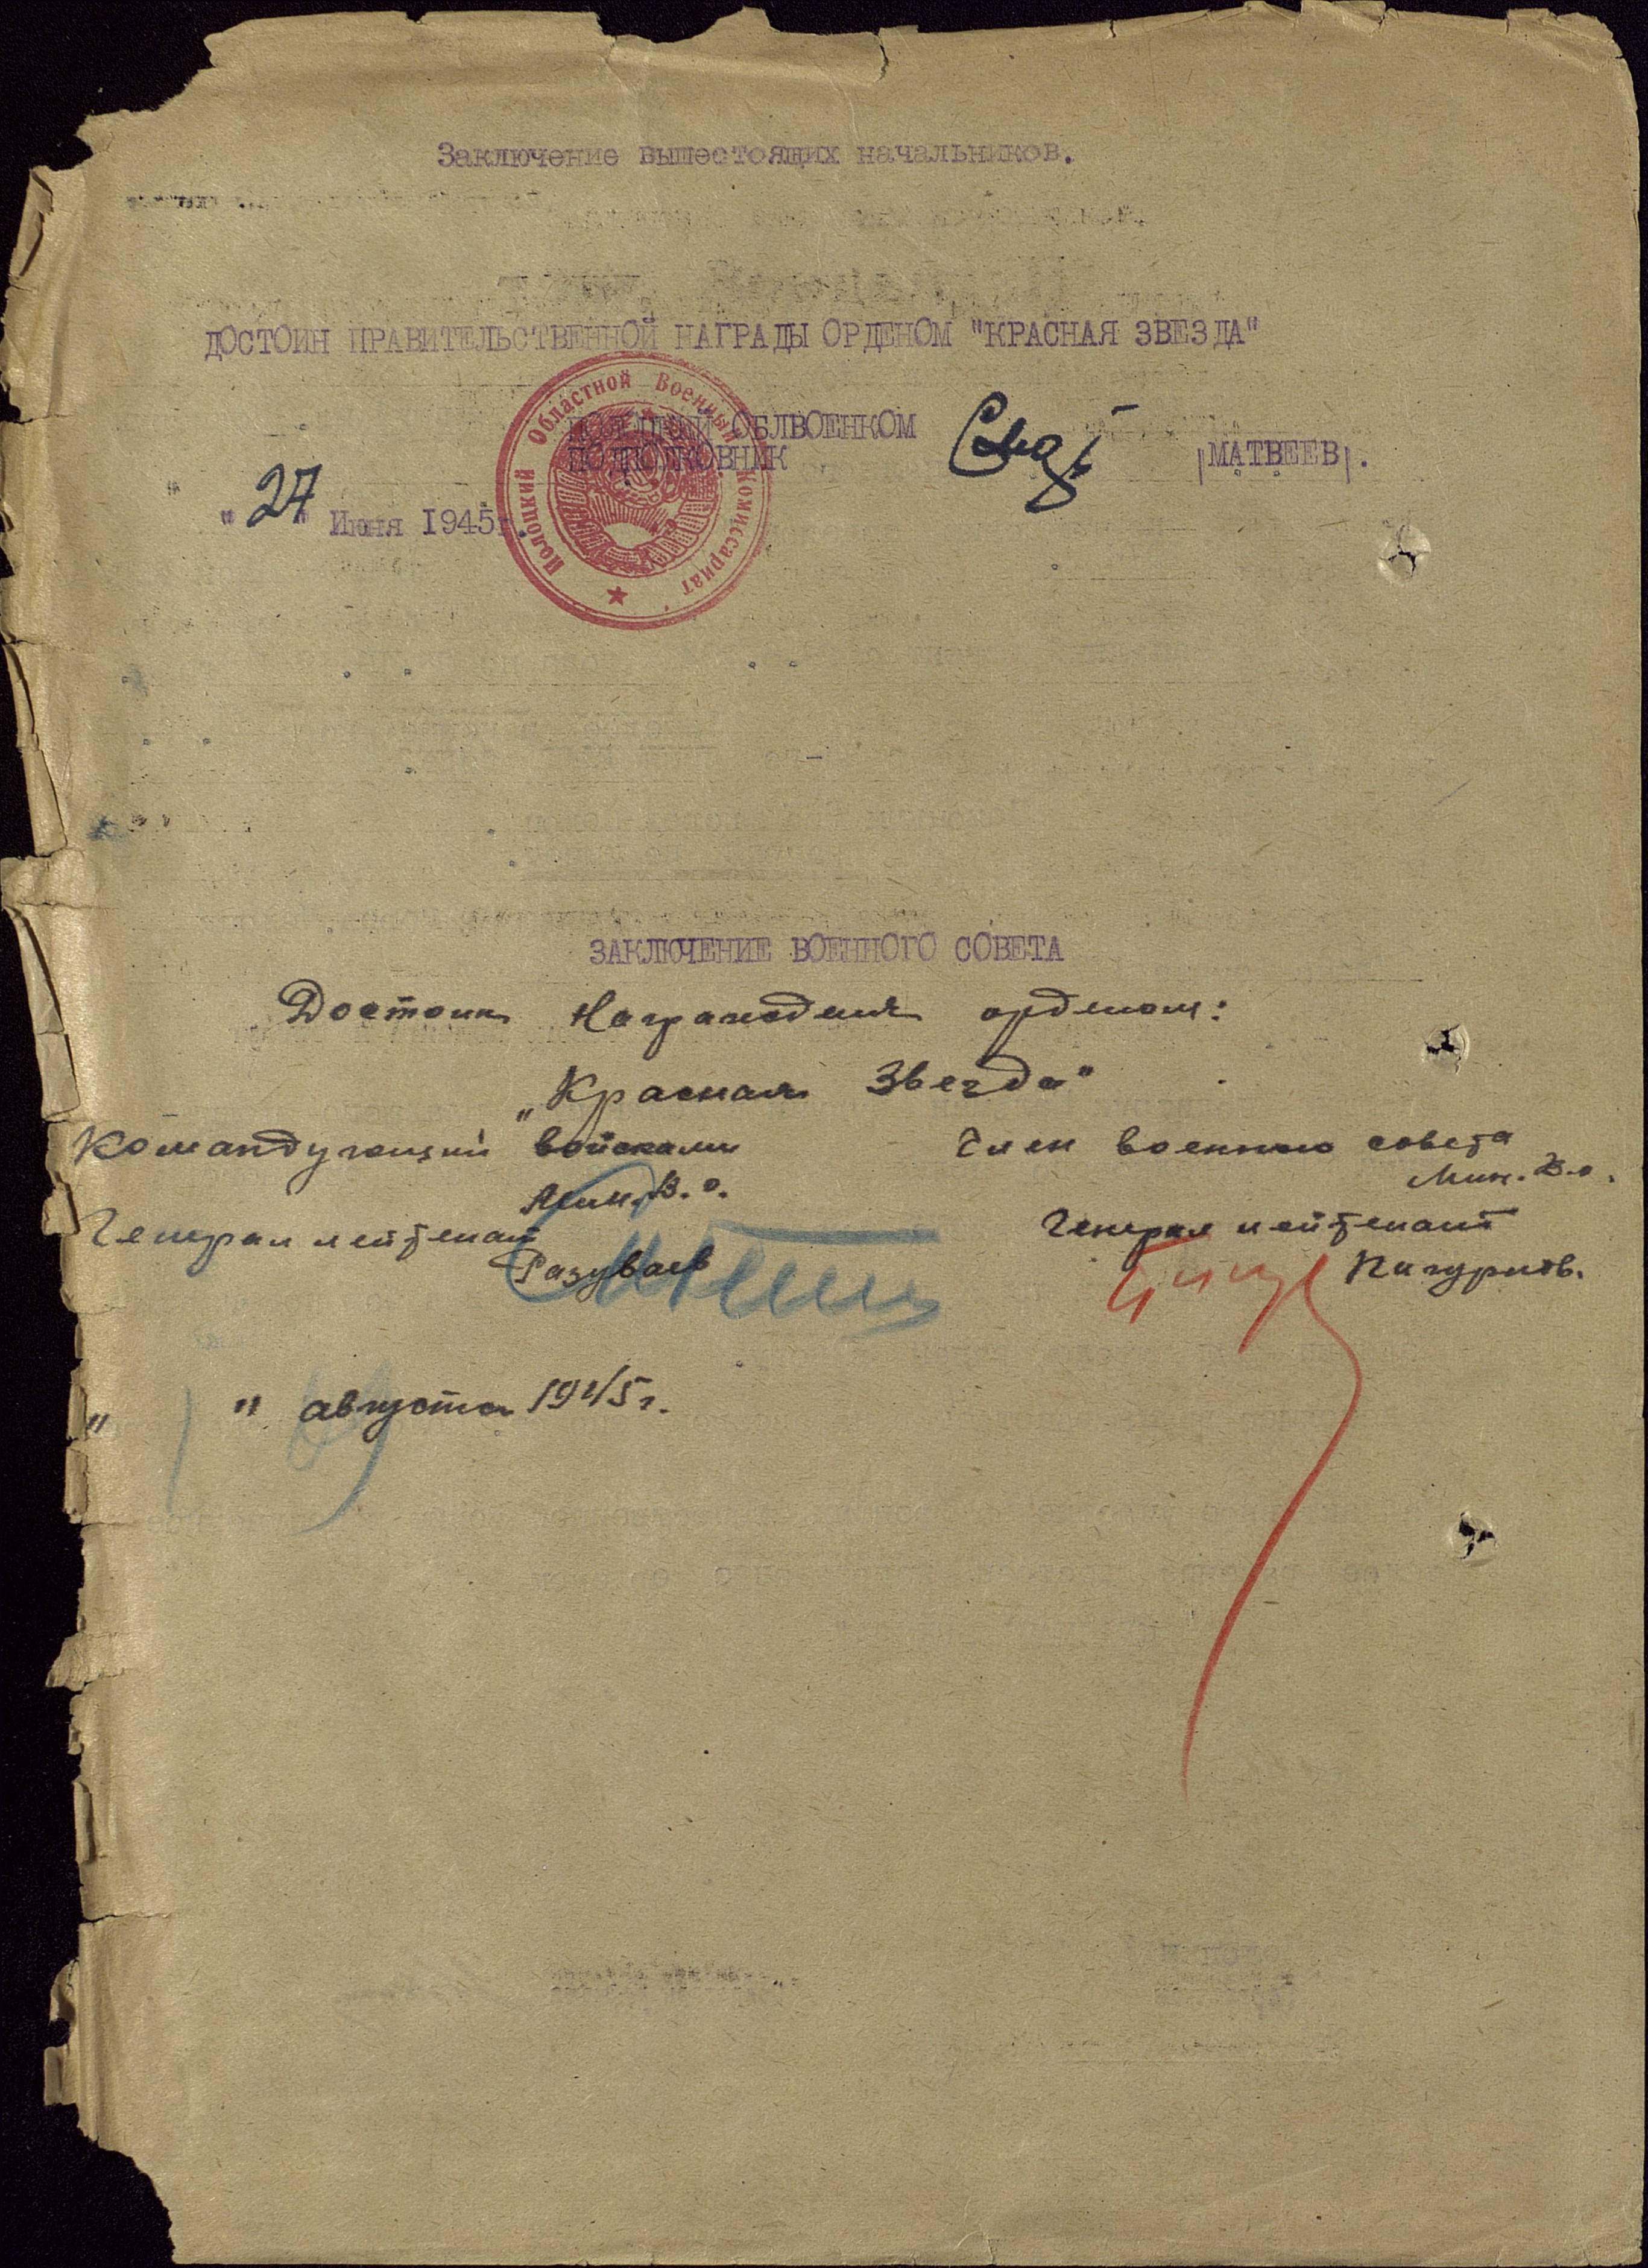 Заключение вышестоящих начальников.
ДОСТОИН ПРАВИТЕЛЬСТВЕННОЙ НАГРАДЫ ОРДЕНОМ "КРАСНАЯ ЗВЕЗДА"
Полоцкий Областной Военный Комиссариат
ПОЛОЦКИЙ ОБЛВОЕНКОМ
ПОДПОЛКОВНИК
/МАТВЕЕВ/.
"27" Июня 1945г.
ЗАКЛЮЧЕНИЕ ВОЕННОГО СОВЕТА
Достоин Награждения орденом:
„Красная Звезда"
Командующий войсками
Мин. В.о.
Член военного совета
Мин. В.о.
Генерал лейтенант
Разуваев
Генерал лейтенант
Пигурнов.
" " августа 1945г.